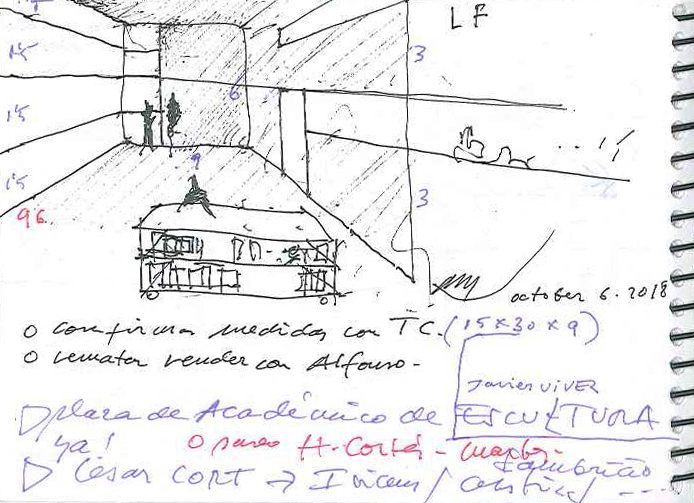 LF
1'5
3
1'5
6
1'5
9
1'5
3
96
october 6. 2018
o confirmar medidas con TC. (15 x 30 x 9)
o rematar render con Alfonso -
Javier VIVER
▷ plaza de Académico de ESCULTURA
ya!
o paseo H. Cortés -
▷ César CORT →